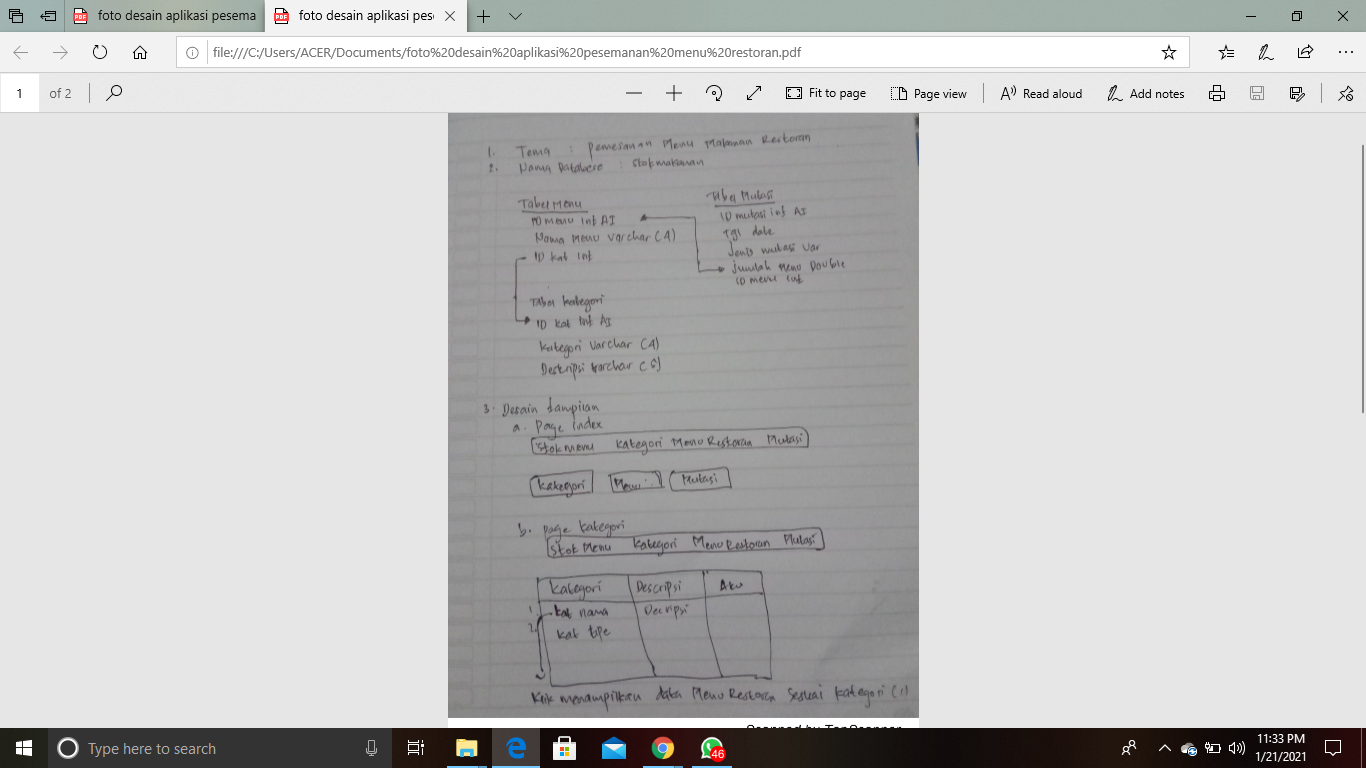 foto desain aplikasi pesema
foto desain aplikasi pes
file:///C:/Users/ACER/Documents/foto%20desain%20aplikasi%20pesemanan%20menu%20restoran.pdf
1 of 2
Fit to page
Page view
Read aloud
Add notes
1. Tema : Pemesanan Menu Makanan Restoran
2. Nama Database : Stokmakanan
Tabel Menu
ID menu int AI
Nama Menu Varchar (4)
ID kat int
Tabel Mutasi
ID mutasi int AI
Tgl date
Jenis mutasi Var
Jumlah Menu Double
ID menu int
Tabel kategori
ID kat int AI
Kategori Varchar (4)
Deskripsi Varchar
3. Desain tampilan
a. Page Index
Stok menu Kategori Menu Restoran Mutasi
Kategori Menu Mutasi
b. Page kategori
Stok Menu Kategori Menu Restoran Mutasi
Kategori Descripsi
1. kat nama Decripsi
2. kat tipe
Klik menampilkan data Menu Restoran Sesuai kategori
Type here to search
46
11:33 PM
1/21/2021